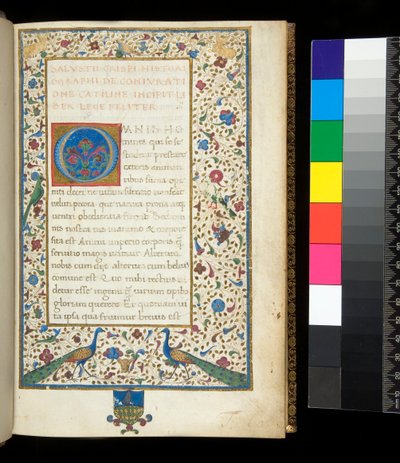 SALVSTII CRISPI HISTORI
OGRAPHI DE CONIVRATI
ONE CATILINE INCIPIT LI
BER LEGE FELITER
OMNIS HO
mines qui se se
student prestare
ceteris animan
tibus suma ope
niti decet ne uitam silentio transeat
ueluti pecora que natura prona atq
uentri obedientia finxit Sed om
nis nostra uis in animo & corpore
sita est Animi imperio corporis
seruitio magis utimur Alterum
nobis cum diis alterum cum beluis
comune est Quo mihi rectius ui
detur esse ingenii q uirium opibus
gloriam querere Et quoniam ui
ta ipsa qua fruimur breuis est